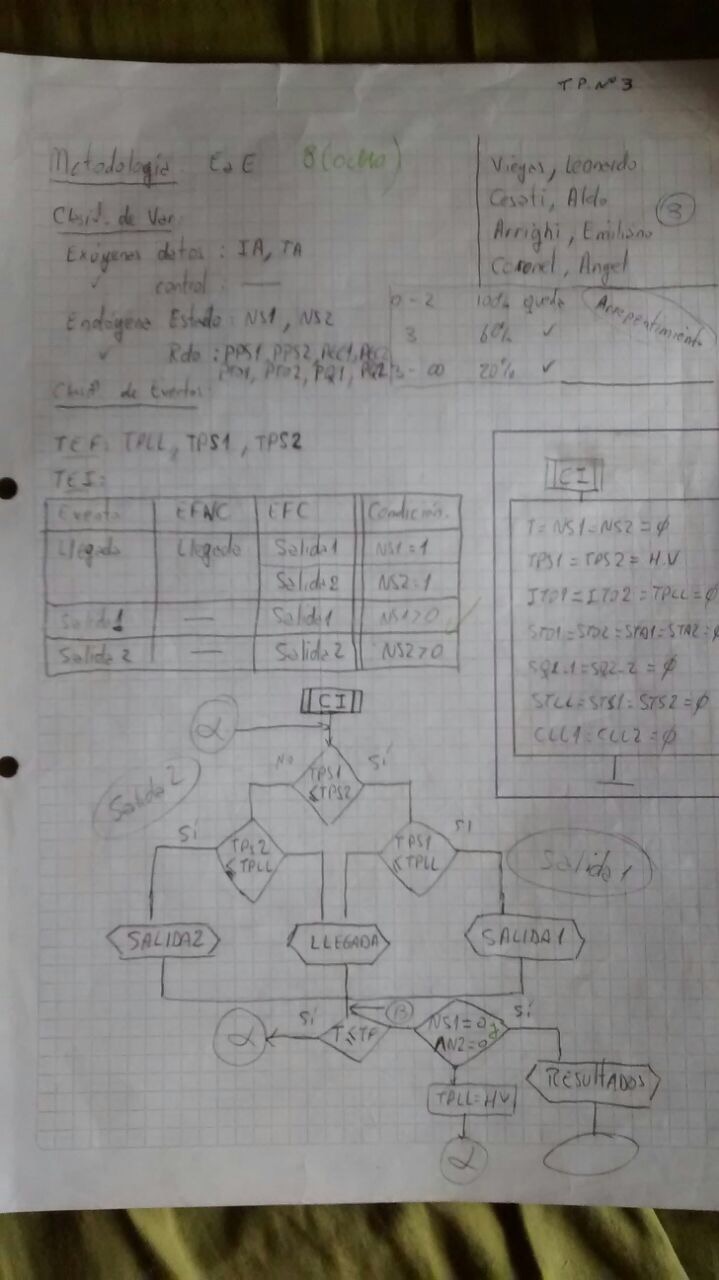 T.P. Nº 3
Metodología EaE 8 (ocho)
Viegas, Leonardo
Cesati, Aldo
Arrighi, Emiliano
Coronel, Angel
3
Clasif. de Var
Exógenas datos: IA, TA
✓ control: —
Endógena Estado: NS1, NS2
✓ Rdo: PPS1, PPS2, PEC1, PEC2
PTO1, PTO2, PQ1, PQ2
0-2 100% queda
3 60% ✓
3-∞ 20% ✓
Arrepentimiento
Clasif. de Eventos:
TEF: TPLL, TPS1, TPS2
TEI:
Evento EFNC EFC Condición.
Llegada Llegada Salida1 NS1=1
Salida2 NS2=1
Salida1 — Salida1 NS1>0
Salida2 — Salida2 NS2>0
CI
T=NS1=NS2=Ø
TPS1=TPS2=H.V
ITO1=ITO2=TPLL=Ø
STO1=STO2=STA1=STA2=Ø
STLL=STS1=STS2=Ø
CLL1=CLL2=Ø
CI
α
TPS1 ≤TPS2
No
Sí
Salida2
TPS2 ≤TPLL
Sí
TPS1 ≤TPLL
SI
Salida1
SALIDA2
LLEGADA
SALIDA1
B
α
Sí
T≤TF
NS1=0 y
N2=0
Sí
TPLL=HV
RESULTADOS
α